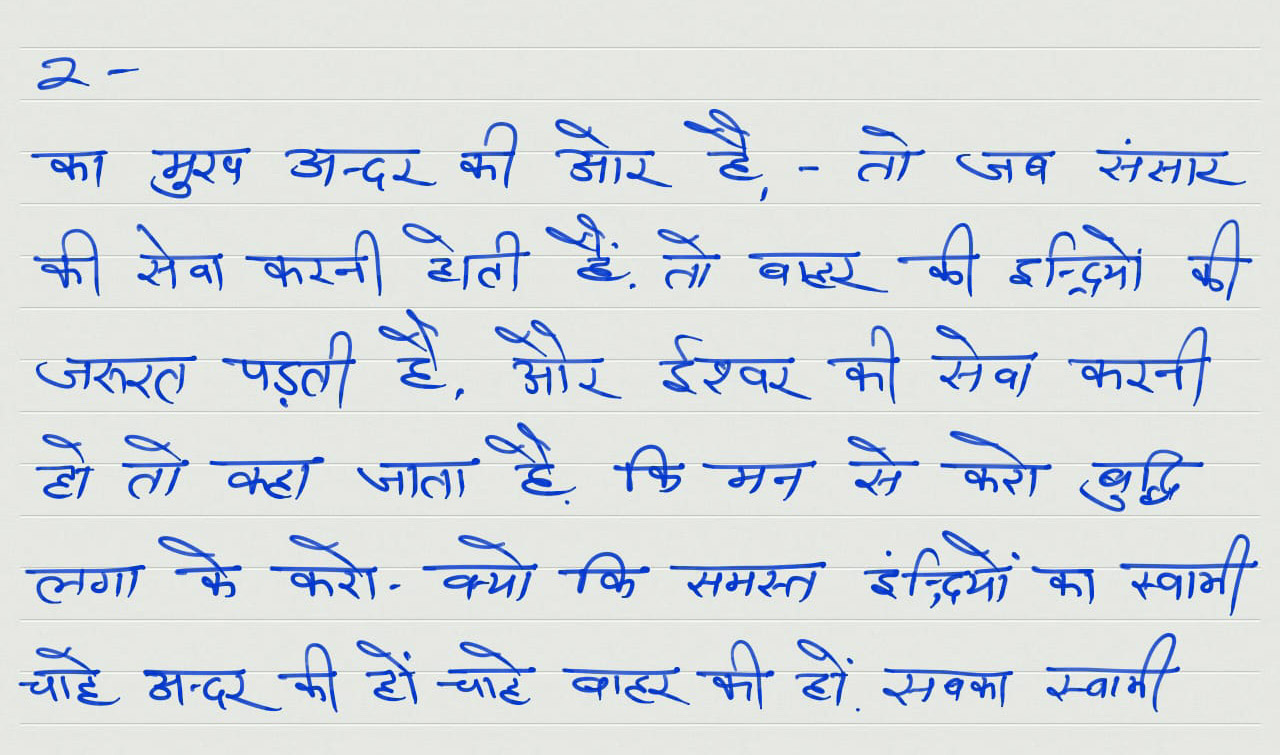 २ -
का मुख अन्दर की ओर है, - तो जब संसार
की सेवा करनी होती हैं. तो बाहर की इन्द्रियों की
जरूरत पड़ती है, और ईश्वर की सेवा करनी
हो तो कहा जाता है. कि मन से करो बुद्धि
लगा के करो. क्यो कि समस्त इंद्रियों का स्वामी
चाहे अन्दर की हों चाहे बाहर की हों. सबका स्वामी